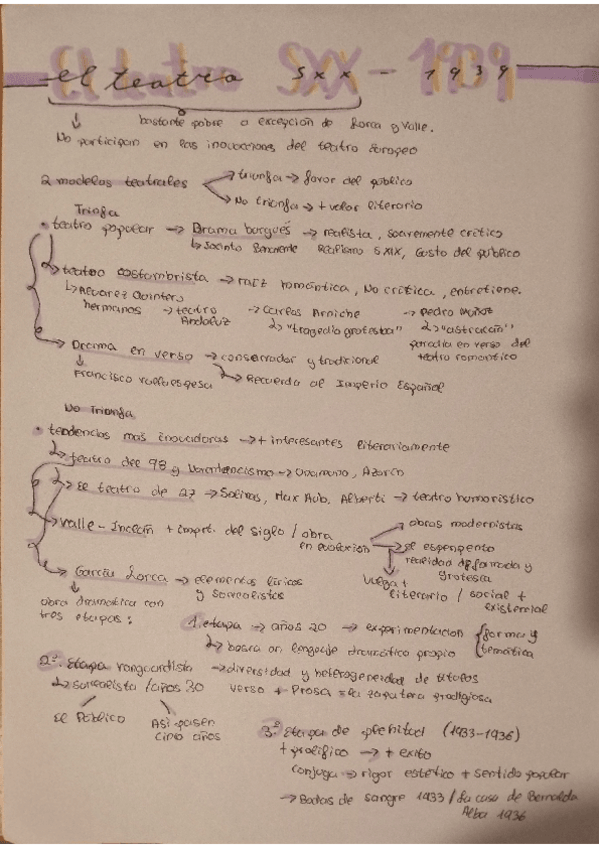 El teatro SXX - 1939
el teatro sxx - 1939
↓ bastante pobre a excepción de Lorca y Valle.
No participan en las inovaciones del teatro Europeo
2 modelos teatrales → triunfa → favor del público
→ No triunfa → + valor literario
Triufa
• teatro popular → Drama burgués → realista, suavemente crítico
↳ Jacinto Benavente Realismo SXIX, Gusto del público
↳ teatro costumbrista → raíz romántica, No crítica, entretiene.
↳ Alvarez Quintero → Carlos Arniche → Pedro Muñoz
hermanos → teatro Andaluz ↳ "tragedia grotesca" ↳ "astracán"
parodia en verso del
teatro romántico
→ Drama en verso → conservador y tradicional
↓ Francisco Villaespesa ↳ Recuerda al Imperio Español
No Triunfa
• tendencias más inovadoras → + interesantes literariamente
↳ teatro del 98 y → Unamuno, Azorín
↳ El teatro de 27 → Salinas, Max Aub, Alberti → teatro humorístico
→ Valle - Inclán + imprt. del siglo / obra en evolución → obras modernistas
→ el esperpento
realidad deformada y
grotesca
literario / social +
existencial
→ García Lorca → elementos líricos
y surrealistas
↓
obra dramática con
tres etapas:
1. etapa → años 20 → experimentación { forma y
temática
↳ busca un lenguaje dramático propio
2ª. Etapa vanguardista → diversidad y heterogeneidad de títulos
↳ surrealista / años 30 verso + Prosa = la zapatera prodigiosa
El Público Así pasen
cinco años
3ª Etapa de plenitud (1933-1936)
+ prolífico → + éxito
conjuga → rigor estético + sentido popular
→ Bodas de sangre 1933 / La casa de Bernalda
Alba 1936